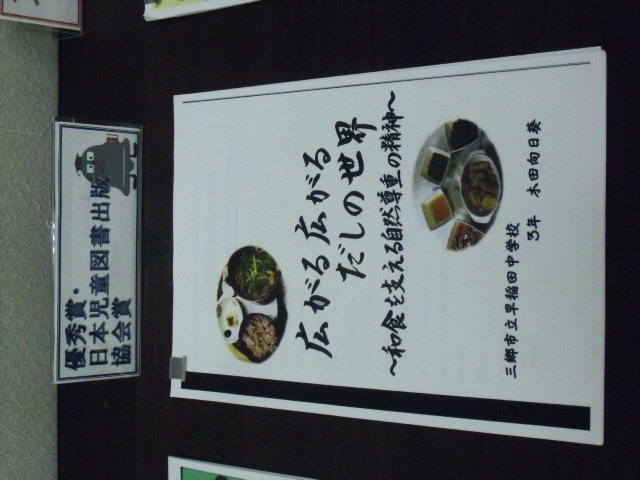 優秀賞・
日本児童図書出版
協会賞
広がる広がる
だしの世界
〜和食を支える自然尊重の精神〜
三郷市立早稲田中学校
3年 木田向日葵